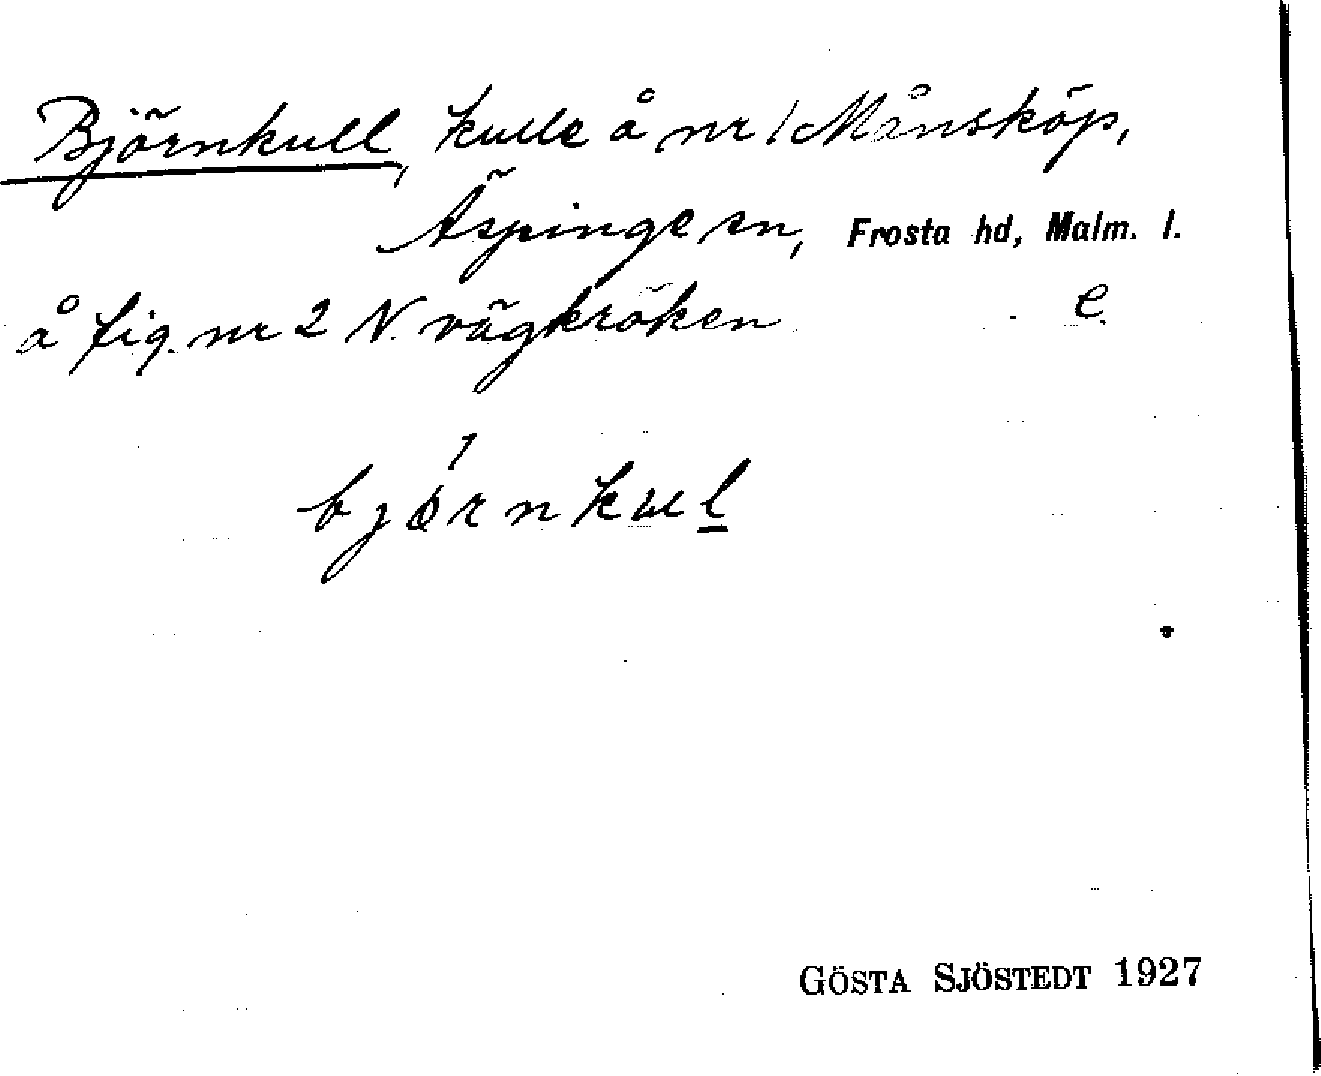 Björnkull, kulle å nr 1 Månsköp,
Äspinge sn, Frosta hd, Malm. l.
å fig. nr 2 N. vägkröken e.
björnkul
GÖSTA SJÖSTEDT 1927